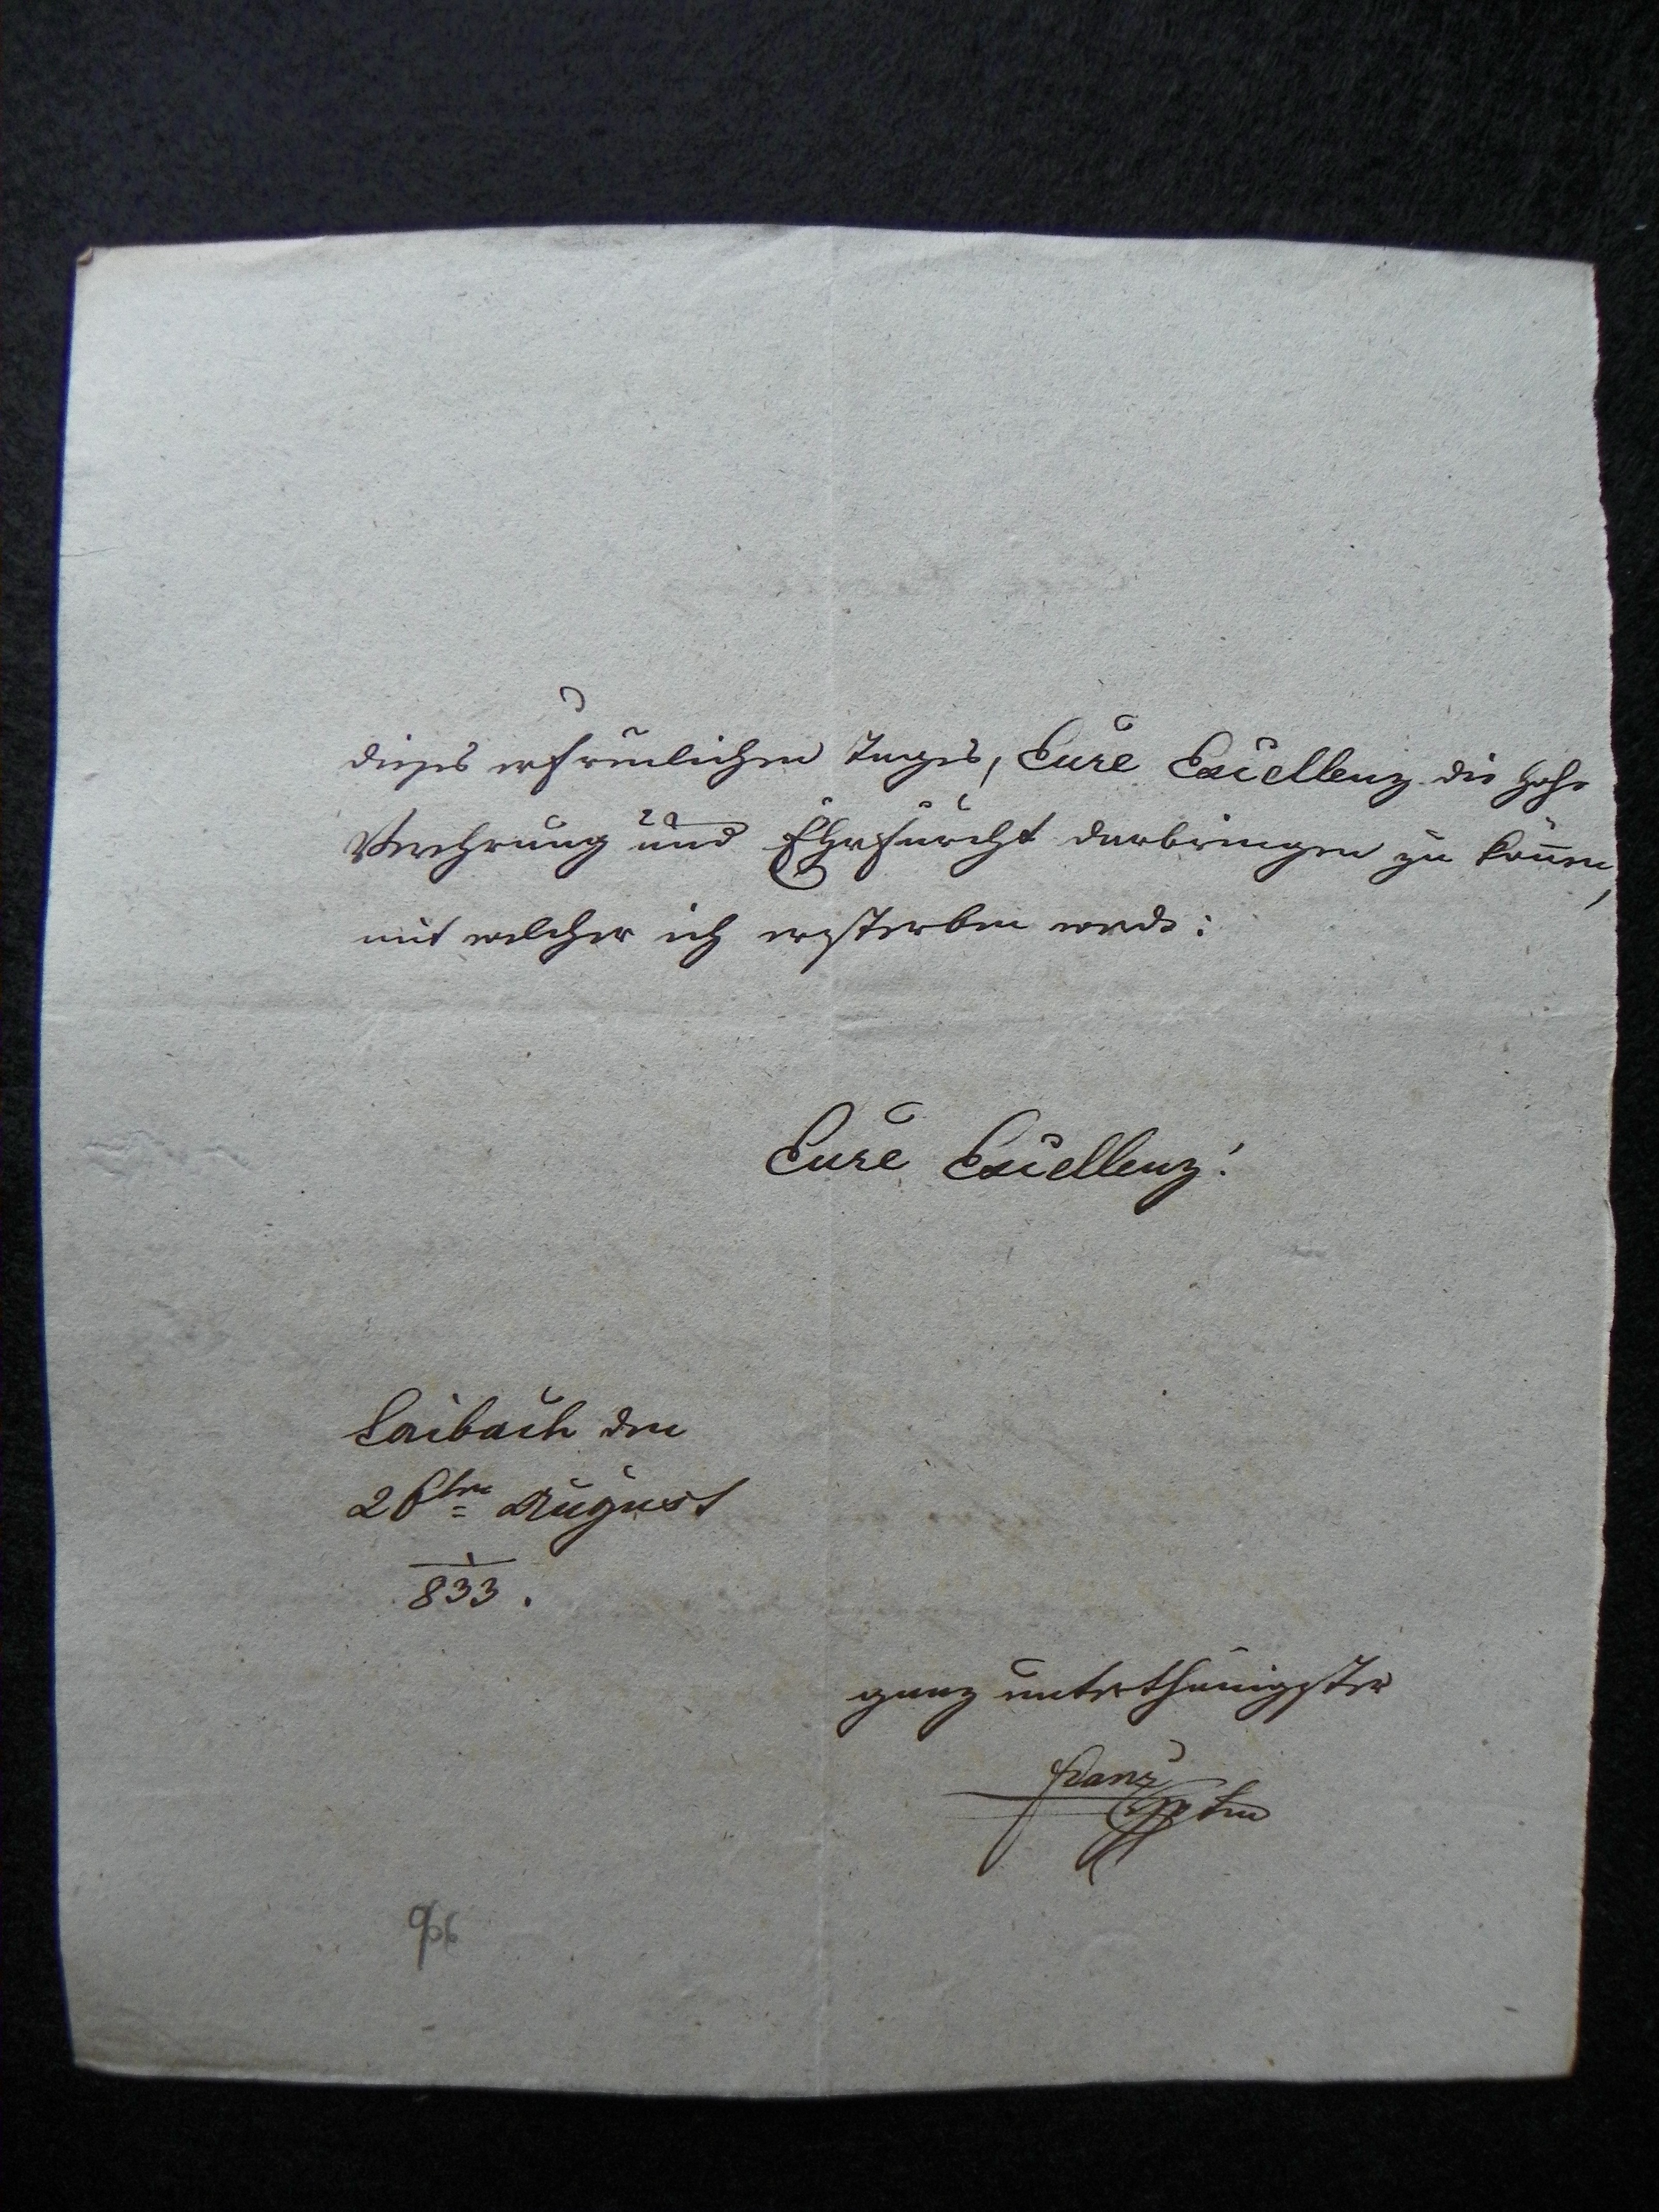 dieses erfreulichen Tages, Eure Excellenz die hohe
Verehrung und Ehrfurcht darbringen zu kön̄en,
mit welcher ich ersterben werde:
Eure Excellenz!
Laibach den
26ten August
833.
ganz unterthänigster
Franz